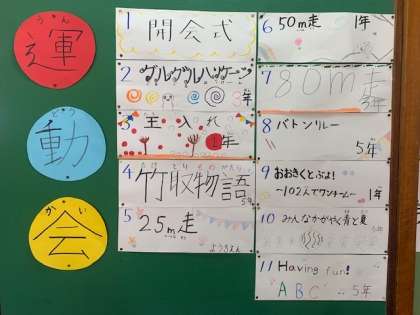 うん
運
どう
動
かい
会
1 開会式
2 グルグルハリケーン
3年
3 玉入れ
1年
4 竹取物語
たけとりものがたり
5年
5 25m走
ようちえん
6 50m走 1年
7 80m走
3年
8 バトンリレー
5年
9 おおきくとぶよ!
~102人でワンチーム~ 1年
10 みんなかがやく青と夏
11 Having fun!
ABC 5年